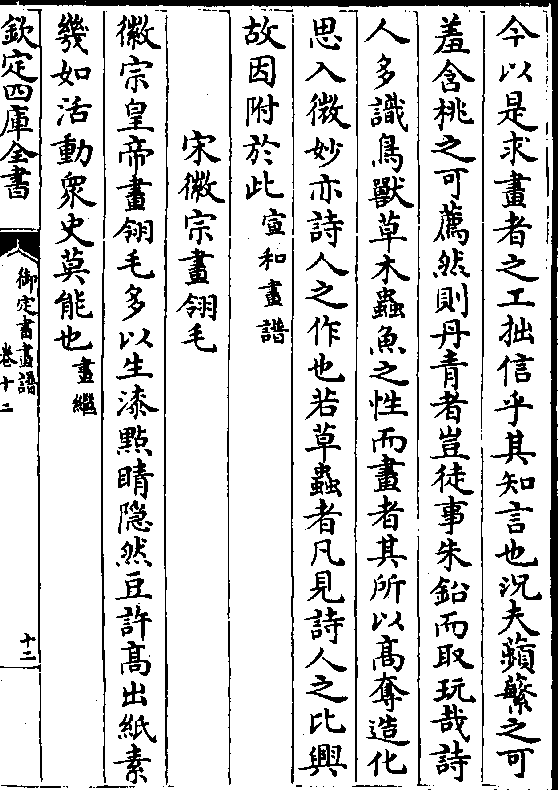 今以是求畫者之工拙信乎其知言也況夫蘋蘩之可
羞含桃之可薦然則丹青者豈徒事朱鉛而取玩哉詩
人多識鳥獸草木蟲魚之性而畫者其所以髙奪造化
思入微妙亦詩人之作也若草蟲者凡見詩人之比興
故因附於此宣和畫譜
宋徽宗畫翎毛
徽宗皇帝畫翎毛多以生漆㸃睛隠然豆許髙出紙素
幾如活動衆史莫能也畫繼
欽定四庫全書
御定書畫譜
卷十二
十二